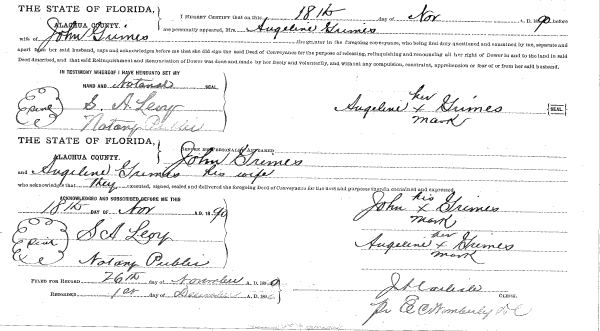 THE STATE OF FLORIDA,
ALACHUA COUNTY.
I HEREBY CERTIFY that on this 18th day of Nov A. D. 1890 before
me personally appeared, Mrs. Augeline Grimes
wife of John Grimes the grantor in the foregoing conveyance, who being by me, separate and
apart from her said husband, says and acknowledges before me that she did sign the said Deed of Conveyance for the purpose of releasing, relinquishing and renouncing all her right of Dower in and to the land in said
Deed described, and that said Relinquishment and Renunciation of Dower was done and made by her freely and voluntarily, and without any compulsion, constraint, apprehension or fear of or from her said husband.
IN TESTIMONY WHEREOF I HAVE HEREUNTO SET MY
HAND AND Notarial SEAL
S. A. Levy
Notary Public
her
Augeline x Grimes
mark
SEAL
THE STATE OF FLORIDA,
ALACHUA COUNTY.
BEFORE ME PERSONALLY APPEARED John Grimes
and Augeline Grimes his wife
who acknowledges that they executed, signed, sealed and delivered the foregoing Deed of Conveyance for the uses and purposes therein contained and expressed.
ACKNOWLEDGED AND SUBSCRIBED BEFORE ME THIS
18th DAY OF Nov A. D. 1890
S A Levy
Notary Public
his
John x Grimes
mark
her
Augeline x Grimes
mark
FILED FOR RECORD 26th day of November A. D. 1890
RECORDED 1st day of December A. D. 1890
CLERK.
pr E C Wimberly D C